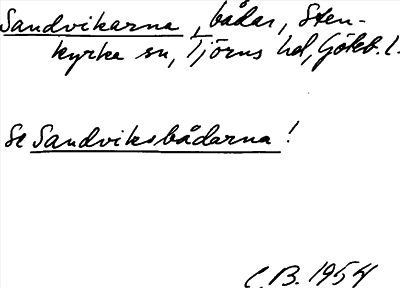 Sandvikarna, bådar, Sten-
kyrka sn, Tjörns hd, Göteb. l.
Se Sandviksbådarna!
C.B. 1954